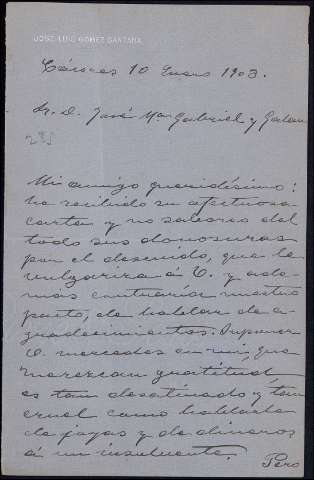 JOSÉ LUIS GÓMEZ SANTANA
Cáceres 10 Enero 1903.
Sr. D. José Ma Gabriel y Galan
Mi amigo queridísimo:
he recibido su afectuosa
carta y no saboreo del
todo sus donosuras
por el descuido, que le
vulgariza á V. y ade-
mas contraría nuestro
pacto, de hablar de a-
gradecimientos. Suponer
V. mercedes en mi, que
merezcan gratitud
es tan desatinado y tan
cruel como hablarle
de joyas y de dineros
á un insolvente.
Pero